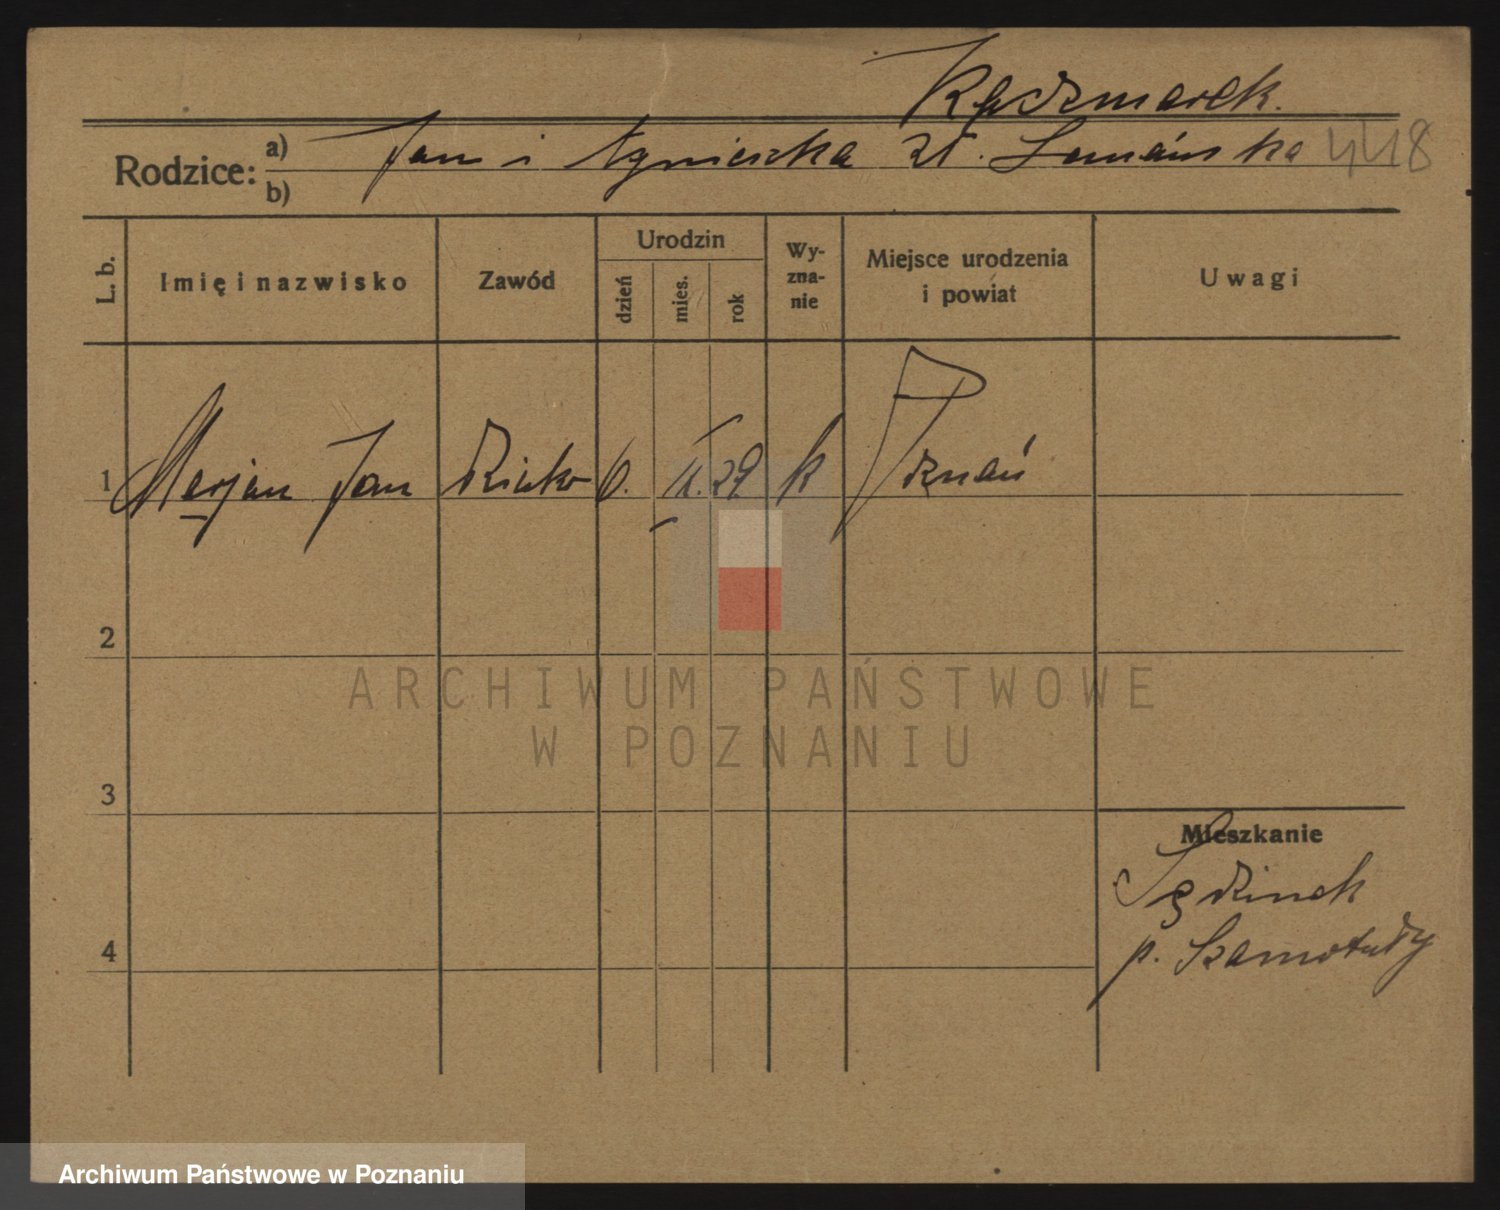 Kaczmarek.
Rodzice: a) Jan i Agnieszka zd. 4418
b)
L. b. Imię i nazwisko Zawód Urodzin dzień mies. rok Wyznanie Miejsce urodzenia i powiat Uwagi
1 Marjan Jan 6. II. 29 k Poznań
2
3
Mieszkanie
Sędzinek
p. Szamotuły
4
ARCHIWUM PAŃSTWOWE
W POZNANIU
Archiwum Państwowe w Poznaniu